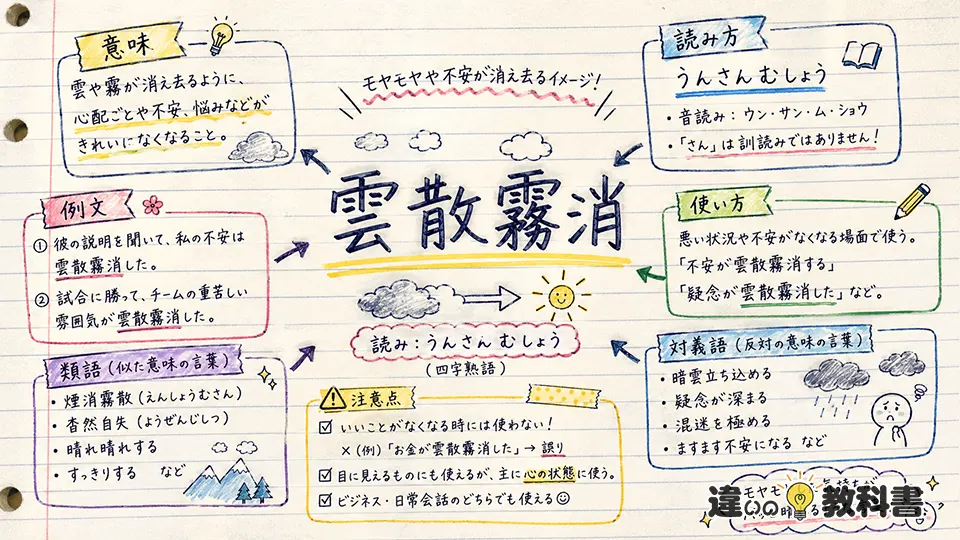 意味
雲や霧が消え去るように、
心配ごとや不安、悩みなどが
きれいになくなること。
モヤモヤや不安が消え去るイメージ!
読み方
うんさん むしょう
・音読み：ウン・サン・ム・ショウ
・「さん」は訓読みではありません!
雲散霧消
例文
① 彼の説明を聞いて、私の不安は
雲散霧消した。
② 試合に勝って、チームの重苦しい
雰囲気が雲散霧消した。
使い方
悪い状況や不安がなくなる場面で使う。
「不安が雲散霧消する」
「疑念が雲散霧消した」など。
読み：うんさん むしょう
(四字熟語)
類語(似た意味の言葉)
・煙消霧散(えんしょうむさん)
・杳然自失(ようぜんじしつ)
・晴れ晴れする
・すっきりする など
注意点
☑ いいことがなくなる時には使わない!
×(例)「お金が雲散霧消した」→ 誤り
☑ 目に見えるものにも使えるが、主に心の状態に使う。
☑ ビジネス・日常会話のどちらでも使える
対義語(反対の意味の言葉)
・暗雲立ち込める
・疑念が深まる
・混迷を極める
・ますます不安になる など
モヤモ
違いの教科書